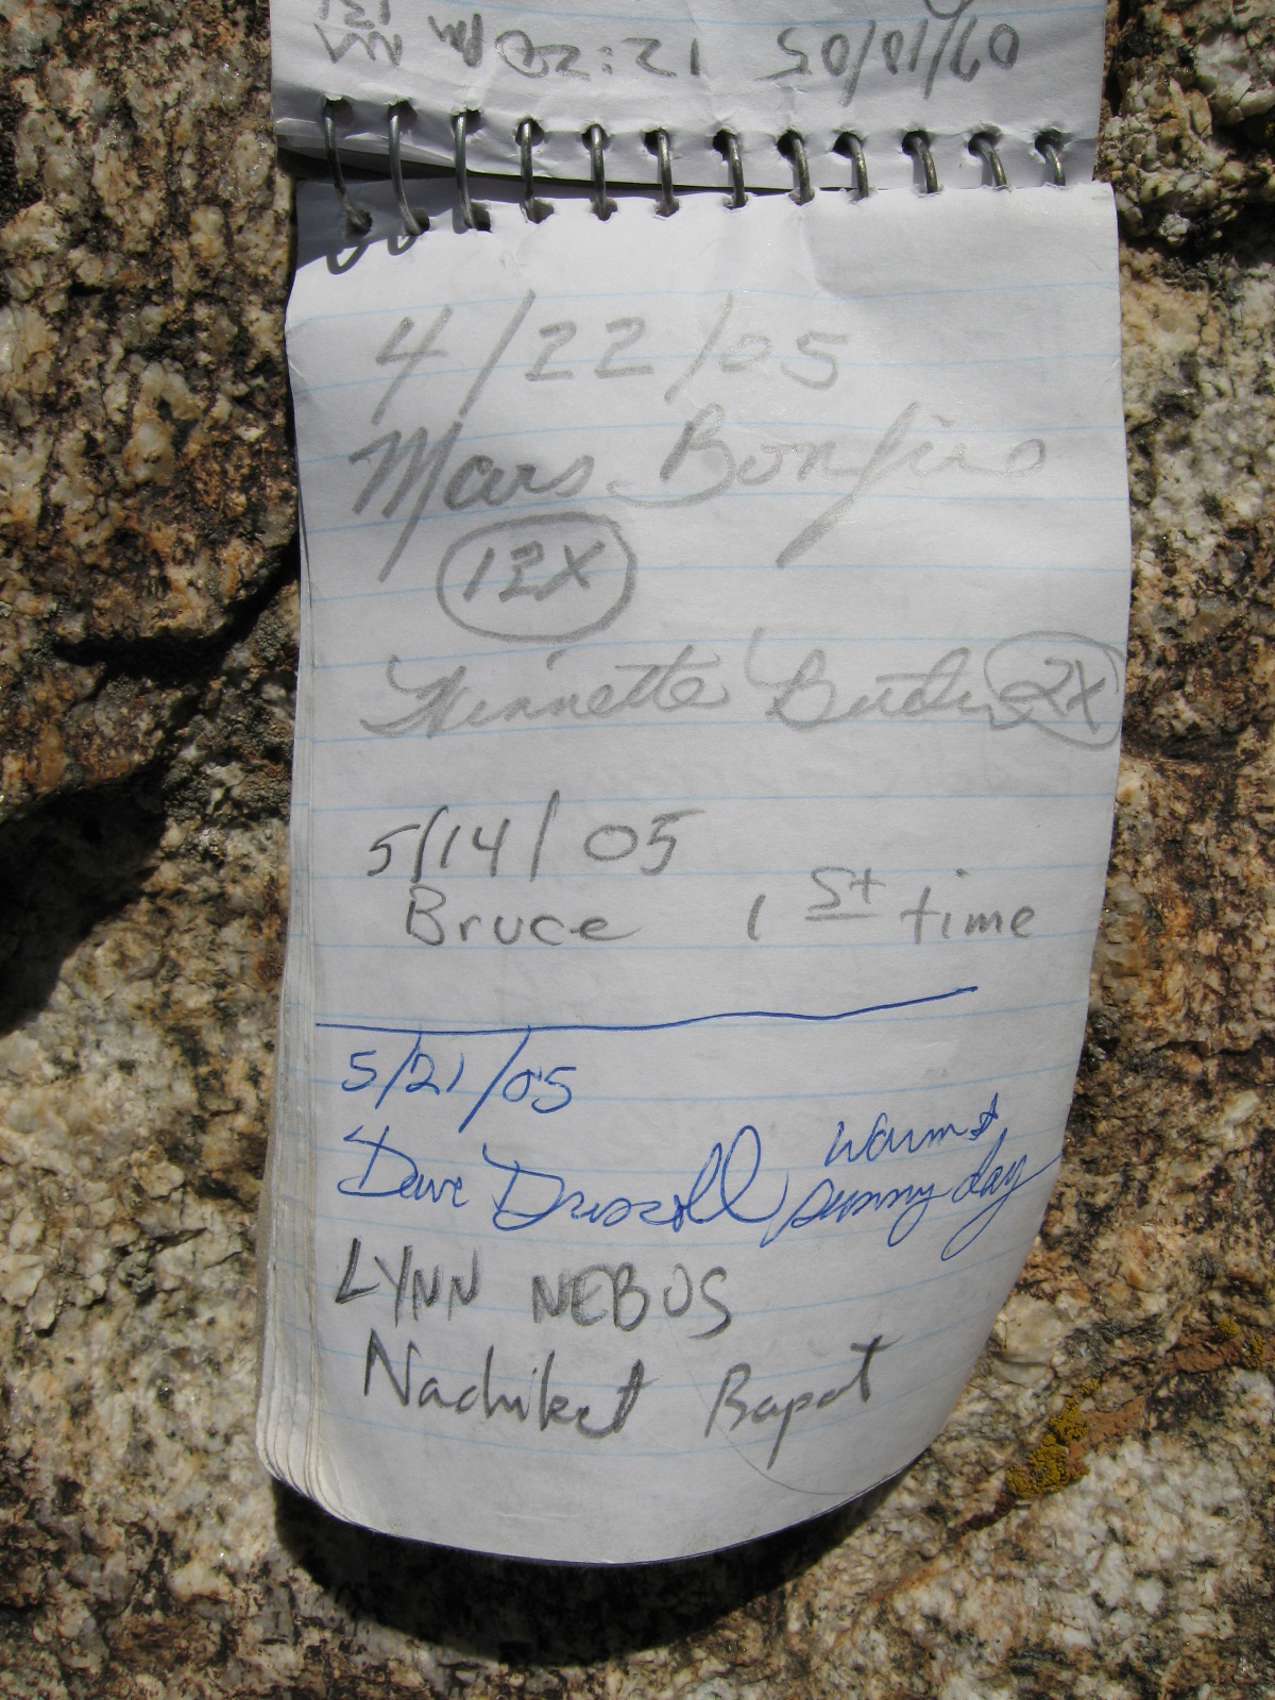 09/10/05 12:20 PM
4/22/05
Mars Bonfire
12X
2X
5/14/05
Bruce 1st time
5/21/05
Dave Driscoll warm &
sunny day
LYNN NEBUS
Nachiket Bapat